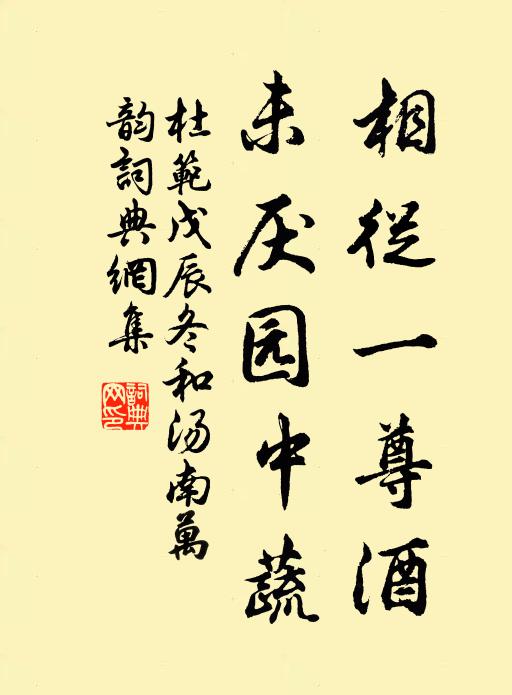 相從一尊酒
未厌园中蔬
杜範戊辰冬和汤南萬
韵詞典網集
詞典网印